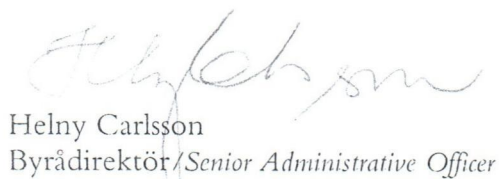 Helny Carlsson
Helny Carlsson
Byrådirektör/Senior Administrative Officer